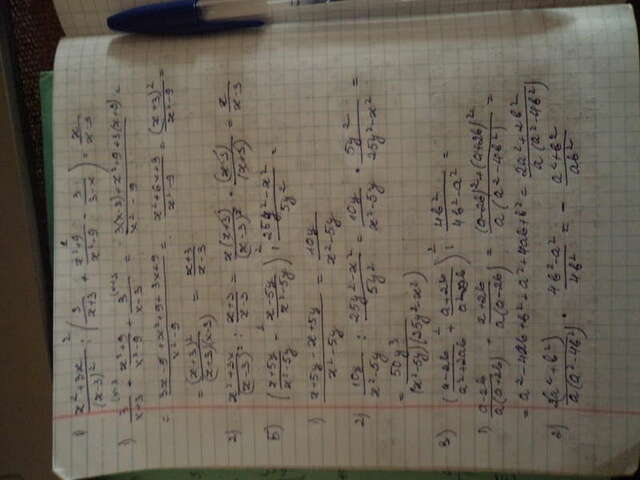 1) (x² + 3x)/(x-3)² : (3/(x+3) + (x²+9)/(x²-9) - 3/(3-x)) = x/(x-3)
1) 3/(x+3) + (x²+9)/(x²-9) + 3/(x-3) = (3(x-3)+x²+9+3(x+3))/(x²-9) =
= (3x-9+x²+9+3x+9)/(x²-9) = (x²+6x+9)/(x²-9) = (x+3)²/(x²-9) =
= (x+3)²/((x+3)(x-3)) = (x+3)/(x-3)
2) (x²+3x)/(x-3)² : (x+3)/(x-3) = x(x+3)/(x-3)² · (x-3)/(x+3) = x/(x-3)
Б) ((x+5y)/(x²-5y) - (x-5y)/(x²-5y)) : (25y²-x²)/5y² =
1) (x+5y-x+5y)/(x²-5y) = 10y/(x²-5y)
2) 10y/(x²-5y) : (25y²-x²)/5y² = 10y/(x²-5y) · 5y²/(25y²-x²) =
= 50y³/((x²-5y)(25y²-x²))
3) ((a-2b)/(a²+2ab) + (a+2b)/(a²-2ab)) : 4b²/(4b²-a²) =
1) (a-2b)/(a(a+2b)) + (a+2b)/(a(a-2b)) = ((a-2b)²+(a+2b)²)/(a(a²-4b²)) =
= a²-4ab+b²+a²+4ab+b² = (2a²+2b²)/(a(a²-4b²))
2) (2a²+b²)/(a(a²-4b²)) · (4b²-a²)/4b² = - (a²+b²)/ab²